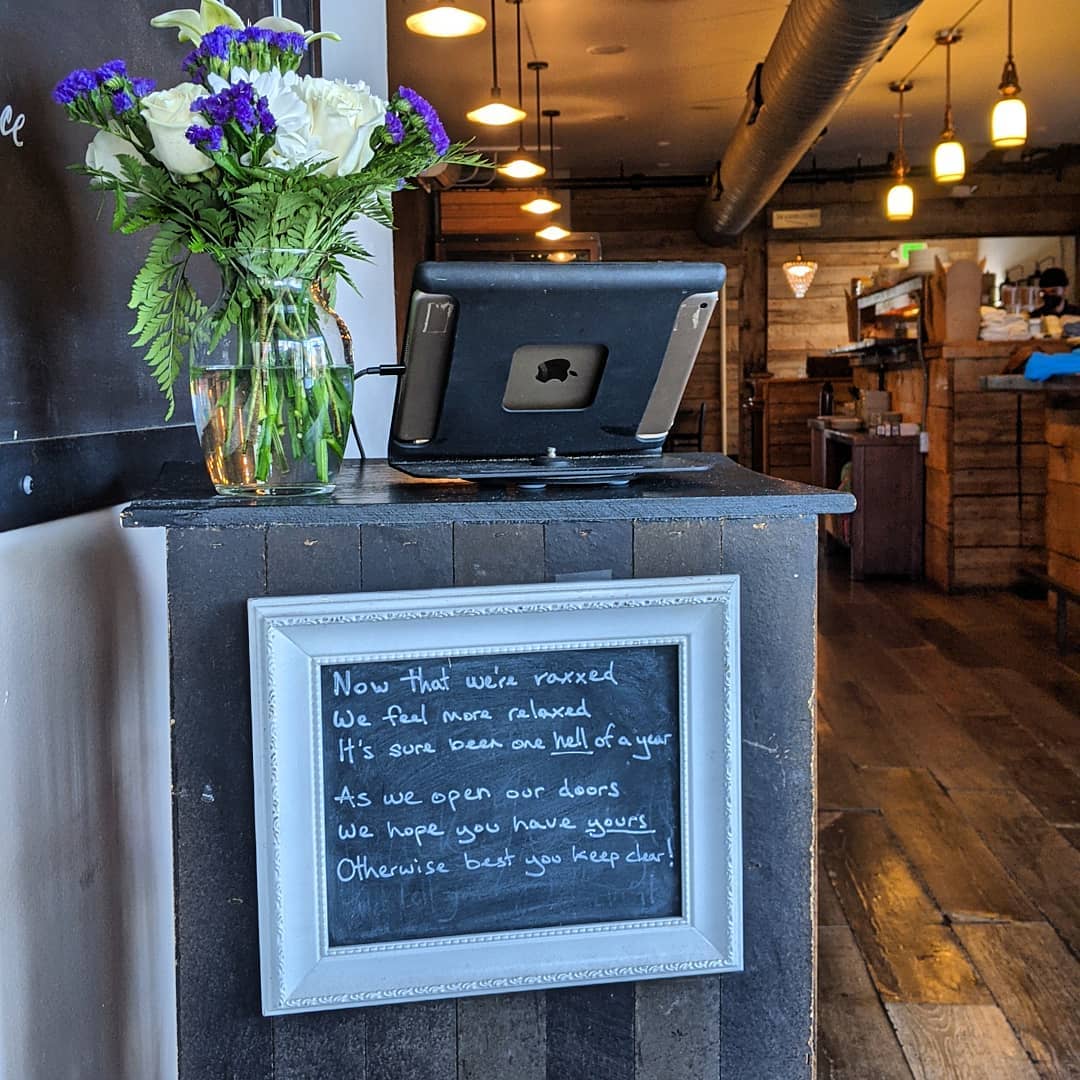 Now that we're vaxxed
We feel more relaxed
It's sure been one hell of a year
As we open our doors
We hope you have yours
Otherwise best you keep clear!